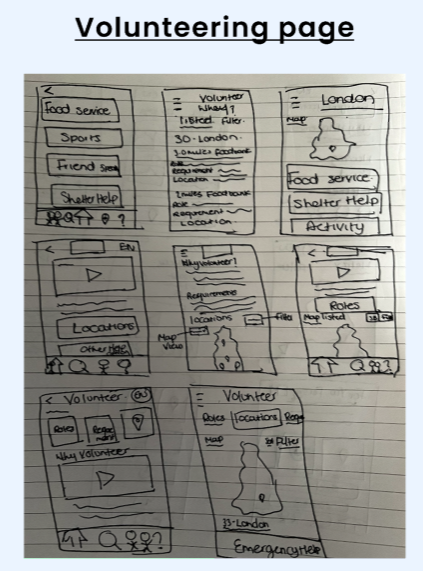 Volunteering page
Food service
Sports
Friend
Shelter Help
?
Volunteer
Where?
listed Filter
30-London.
Role
Requirement
Location
2miles Foodbank
Role
Requirement
Location
London
Map
Food service
Shelter Help
Activity
EN
Locations
Other Help
?
Why volunteer?
Requirement
locations
Filter
Map
View
Roles
Map listed
?
< Volunteer EN
Roles
Why Volunteer
?
Volunteer
Roles locations
Map Filter
33-London
Emergency Help